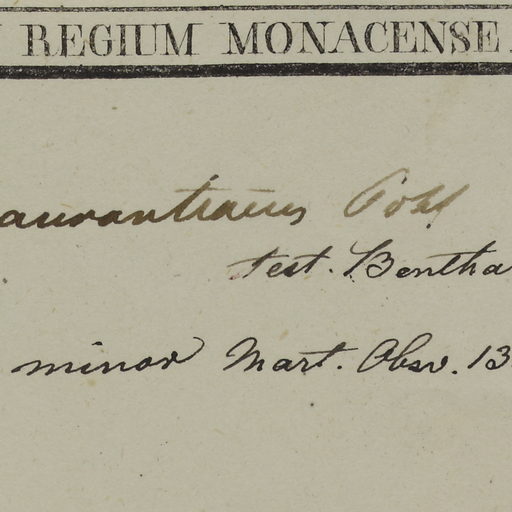 REGIUM MONACENSE
aurantiacus Pohl
test. Bentha
minor Mart. Obsv. 13